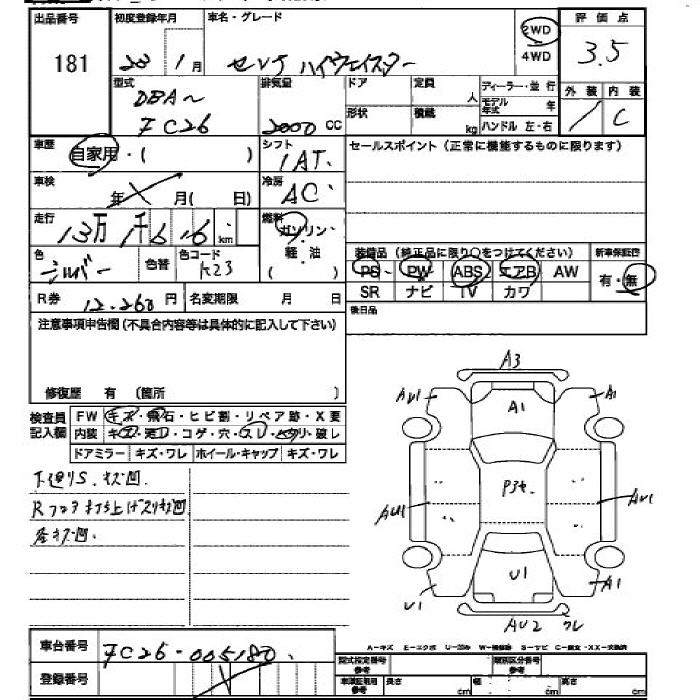 出品番号 初度登録年月 車名・グレード 2WD 評価点
181 23 1月 セレナ ハイウェイスター 4WD 3.5
型式 排気量 ドア 定員 人 ディーラー・並行 外装 内装
DBA~ 形状 積載 kg モデル年式 年 / C
FC26 2000 CC ハンドル 左・右
車歴 自家用・( ) シフト 1AT セールスポイント(正常に機能するものに限ります)
車検 年 月( 日) 冷房 AC
走行 13万 千6 16 km 燃料 ガソリン・
色 シルバー 色替 色コード K23 軽油 ( )
装備品(純正品に限り○をつけてください) 新車保証書
PS PW ABS エアB AW 有・無
R券 12,260円 名変期限 月 日 SR ナビ TV カワ
注意事項申告欄(不具合内容等は具体的に記入して下さい) 後日品
修復歴 有 (箇所 )
検査員記入欄 FW キズ・飛石・ヒビ割・リペア跡・X要
内装 キズ・汚レ・コゲ・穴・スレ・ヘタリ・破レ
ドアミラー キズ・ワレ ホイール・キャップ キズ・ワレ
下廻りS.キズ凹
Rフロア打上げスリキズ凹
座キズ凹.
A3
AU1 A1 A1
P3キ
AU1 AU1
U1 U1 A1
AU2 ワレ
車台番号 FC26-005180
登録番号
A-キズ E-エクボ U-凹み W-補修跡 S-サビ C-腐食 X・XX-交換済
型式指定番号 参考 類別区分番号 参考
車庫証明用 参考 長さ cm 幅 cm 高さ cm